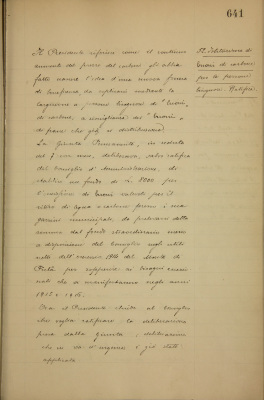 641
Il Presidente riferisce come il continuo
aumento del prezzo del carbone gli abbia
fatto nascere l'idea d'una nuova forma
di beneficenza, da esplicarsi mediante la
largizione a persone bisognose di "buoni"
di carbone, a simiglianza dei "buoni"
di pane che già si distribuiscono.
La Giunta Permanente, in seduta
del 7 corr. mese, deliberava, salvo ratifica
del Consiglio d'Amministrazione, di
stabilire un fondo di L. 1000 per
l'emissione di buoni valevoli per il
ritiro di legna e carbone presso i ma-
gazzini municipali, da prelevarsi detta
somma dal fondo straordinario messo
a disposizione del Consiglio negli utili
netti dell'esercizio 1914 del Monte di
Pietà per sopperire ai bisogni eccezio-
nali che si manifestassero negli anni
1915 e 1916.
Ora il Presidente chiede al Consiglio
che voglia ratificare la deliberazione
presa dalla Giunta, deliberazione
che in via d'urgenza è già stata
applicata.
Distribuzione di
buoni di carbone
per le persone
bisognose. Ratifica.